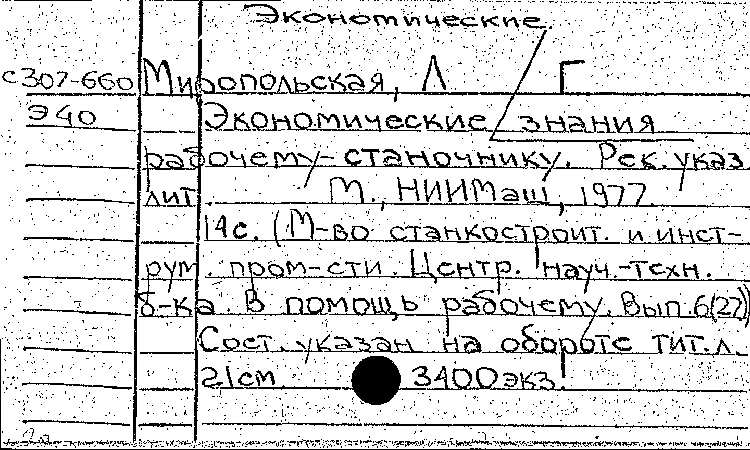 Экономические
с307-660 Миропольская, Л Г
Э40 Экономические знания
рабочему-станочнику. Рек. указ.
лит. М., НИИМаш, 1977.
14с. (М-во станкостроит. и инст-
рум. пром-сти. Центр. науч.-техн.
б-ка. В помощь рабочему. Вып. 6(27))
Сост. указан на обороте тит. л.
21см. 3400экз.